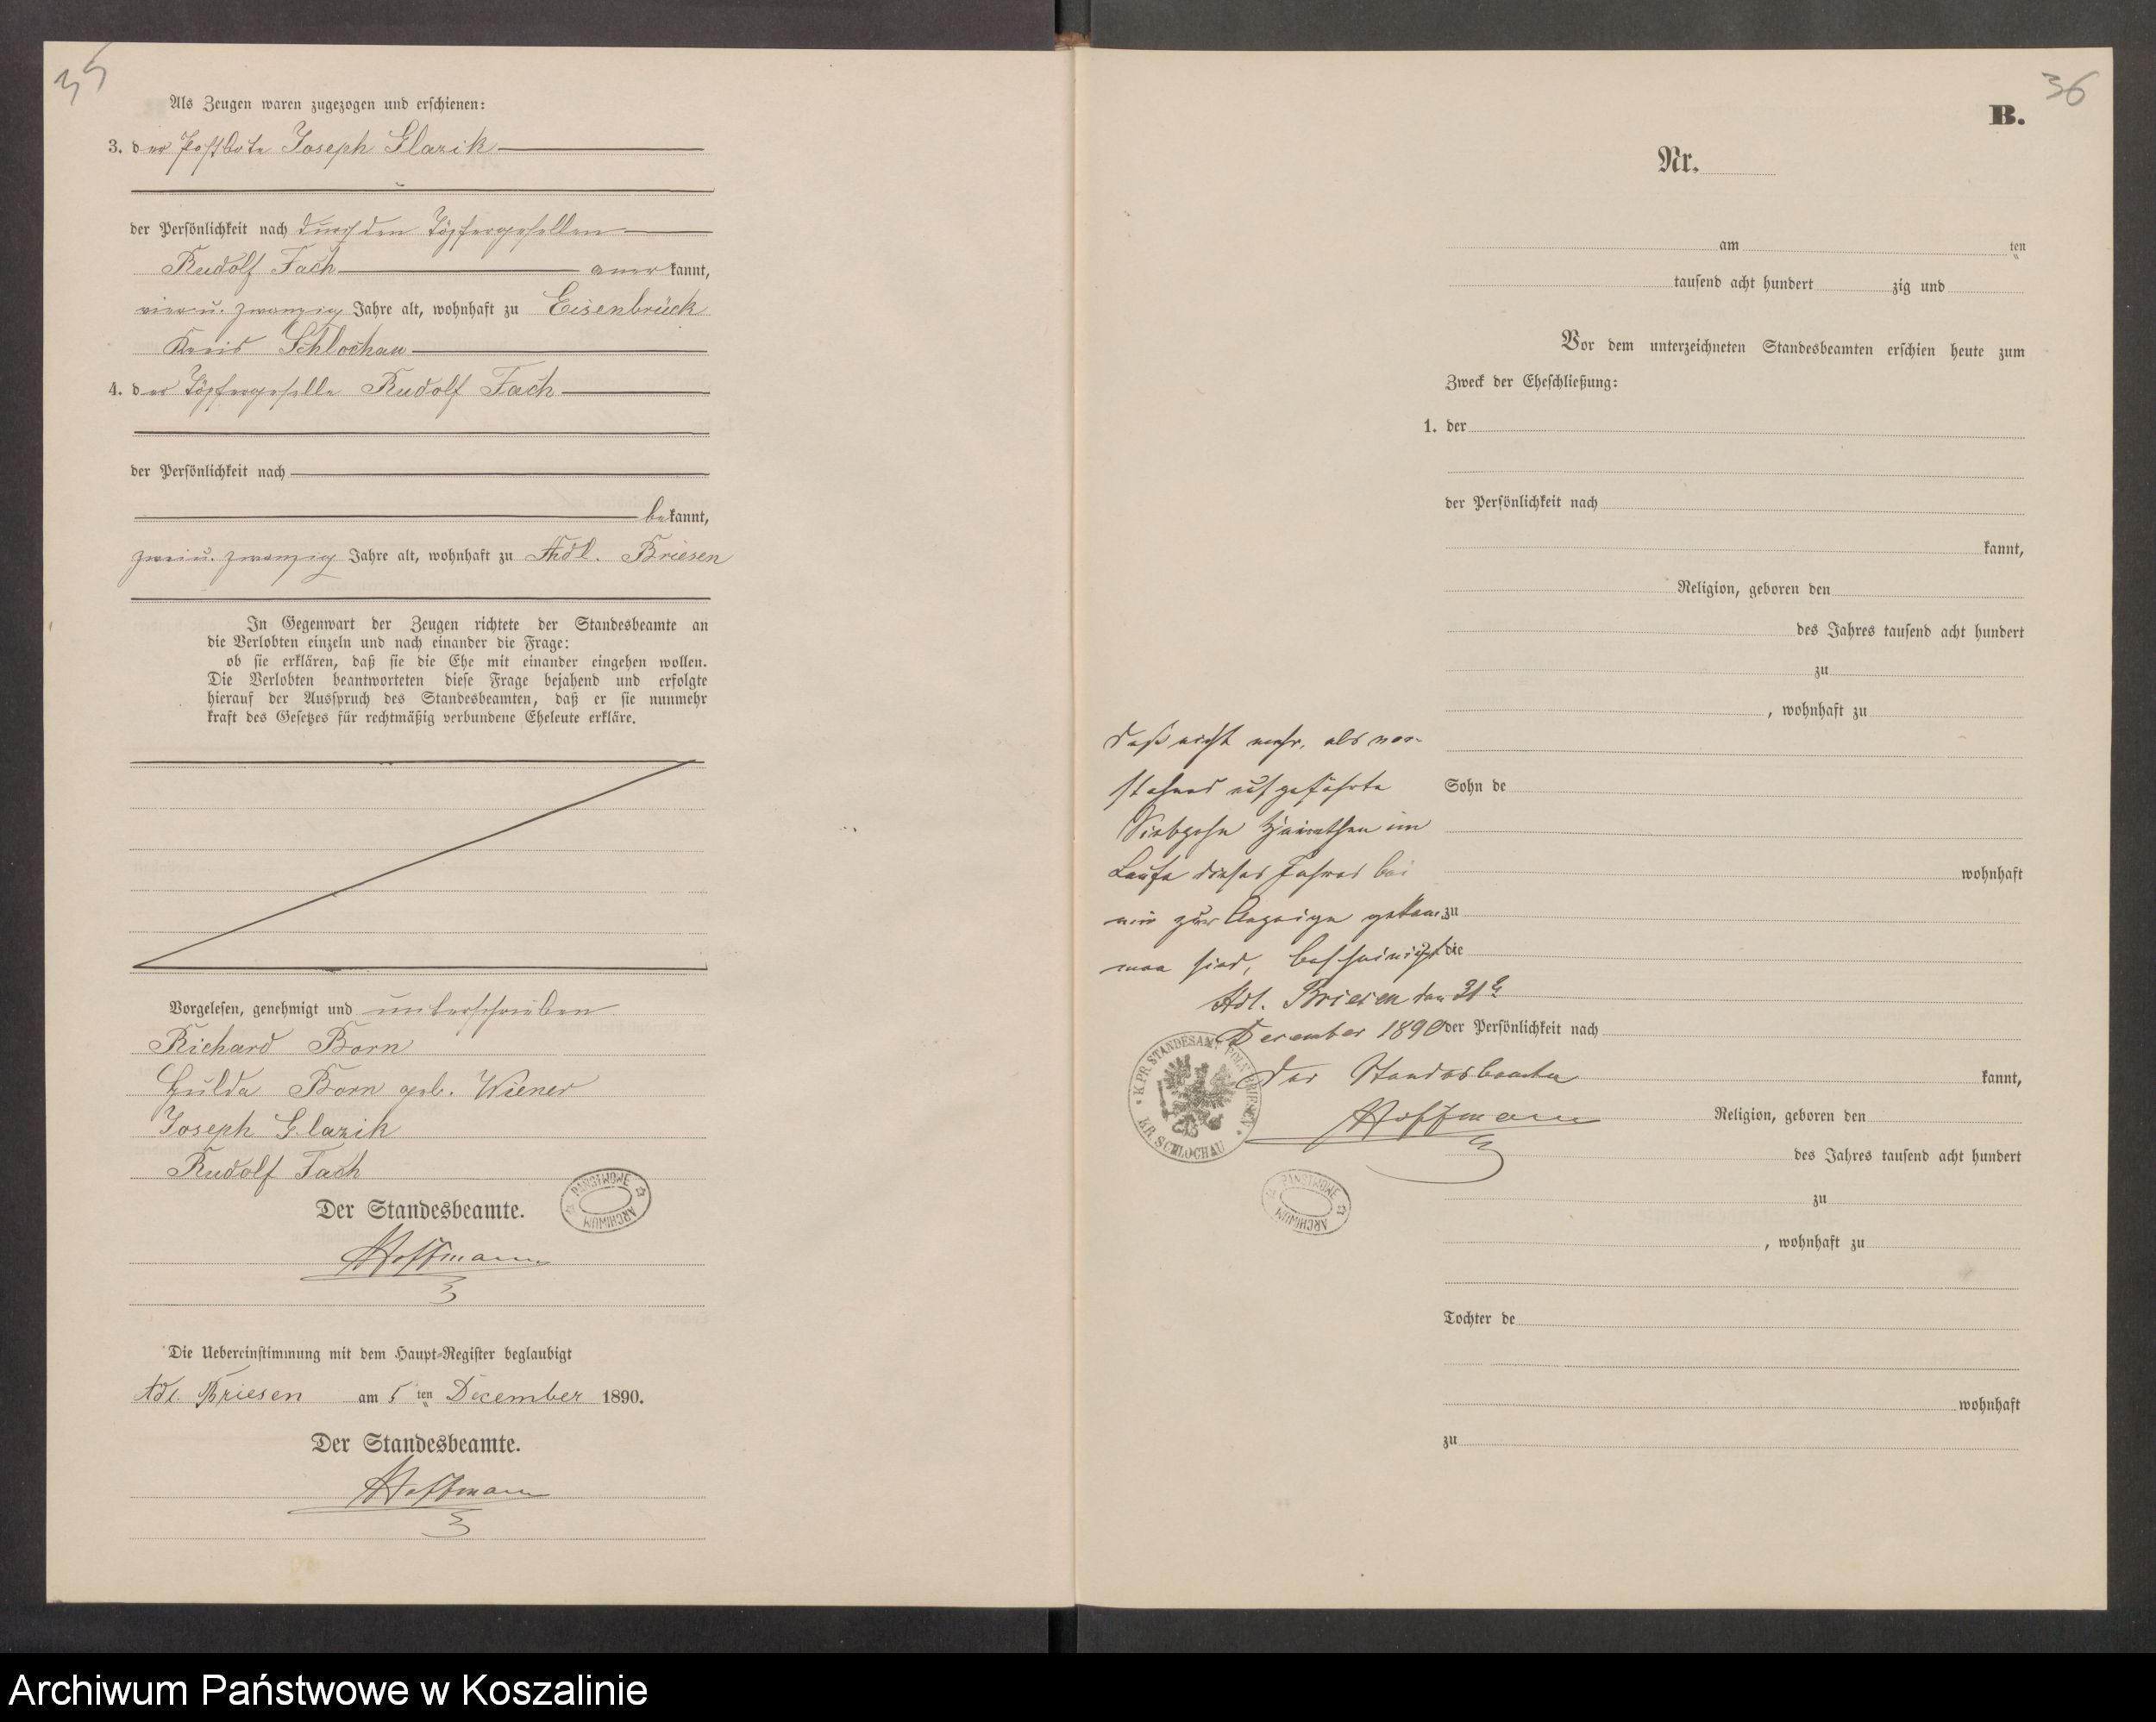 35
Als Zeugen waren zugezogen und erschienen:
3. der Postbote Joseph Glazik
der Persönlichkeit nach durch den Töpfergesellen
Rudolf Fach anerkannt,
vier u. zwanzig Jahre alt, wohnhaft zu Eisenbrück
Kreis Schlochau
4. der Töpfergeselle Rudolf Fach
der Persönlichkeit nach
bekannt,
zwei u. zwanzig Jahre alt, wohnhaft zu Adl. Briesen
In Gegenwart der Zeugen richtete der Standesbeamte an
die Verlobten einzeln und nach einander die Frage:
ob sie erklären, daß sie die Ehe mit einander eingehen wollen.
Die Verlobten beantworteten diese Frage bejahend und erfolgte
hierauf der Ausspruch des Standesbeamten, daß er sie nunmehr
kraft des Gesetzes für rechtmäßig verbundene Eheleute erkläre.
Vorgelesen, genehmigt und unterschrieben
Richard Born
Hulda Born geb. Wiener
Joseph Glazik
Rudolf Fach
Der Standesbeamte.
PAŃSTWOWE ARCHIWUM
Hoffmann
Die Uebereinstimmung mit dem Haupt-Register beglaubigt
Adl. Briesen am 5 ten December 1890.
Der Standesbeamte.
Hoffmann
36
B.
Nr.
am ten
tausend acht hundert zig und
Vor dem unterzeichneten Standesbeamten erschien heute zum
Zweck der Eheschließung:
1. der
der Persönlichkeit nach
kannt,
Religion, geboren den
des Jahres tausend acht hundert
zu
, wohnhaft zu
Sohn de
wohnhaft
zu
die
der Persönlichkeit nach
kannt,
Religion, geboren den
des Jahres tausend acht hundert
zu
, wohnhaft zu
Tochter de
wohnhaft
zu
Daß nicht mehr, als vor-
stehend aufgeführte
Siebzehn Heirathen im
Laufe dieses Jahres bei
mir zur Anzeige gekom-
men sind, bescheinigt
Adl. Briesen den 31ten
December 1890
Der Standesbeamte
Hoffmann
K. PR. STANDESAMT POLN. BRIESEN
KR. SCHLOCHAU
PAŃSTWOWE ARCHIWUM
Archiwum Państwowe w Koszalinie